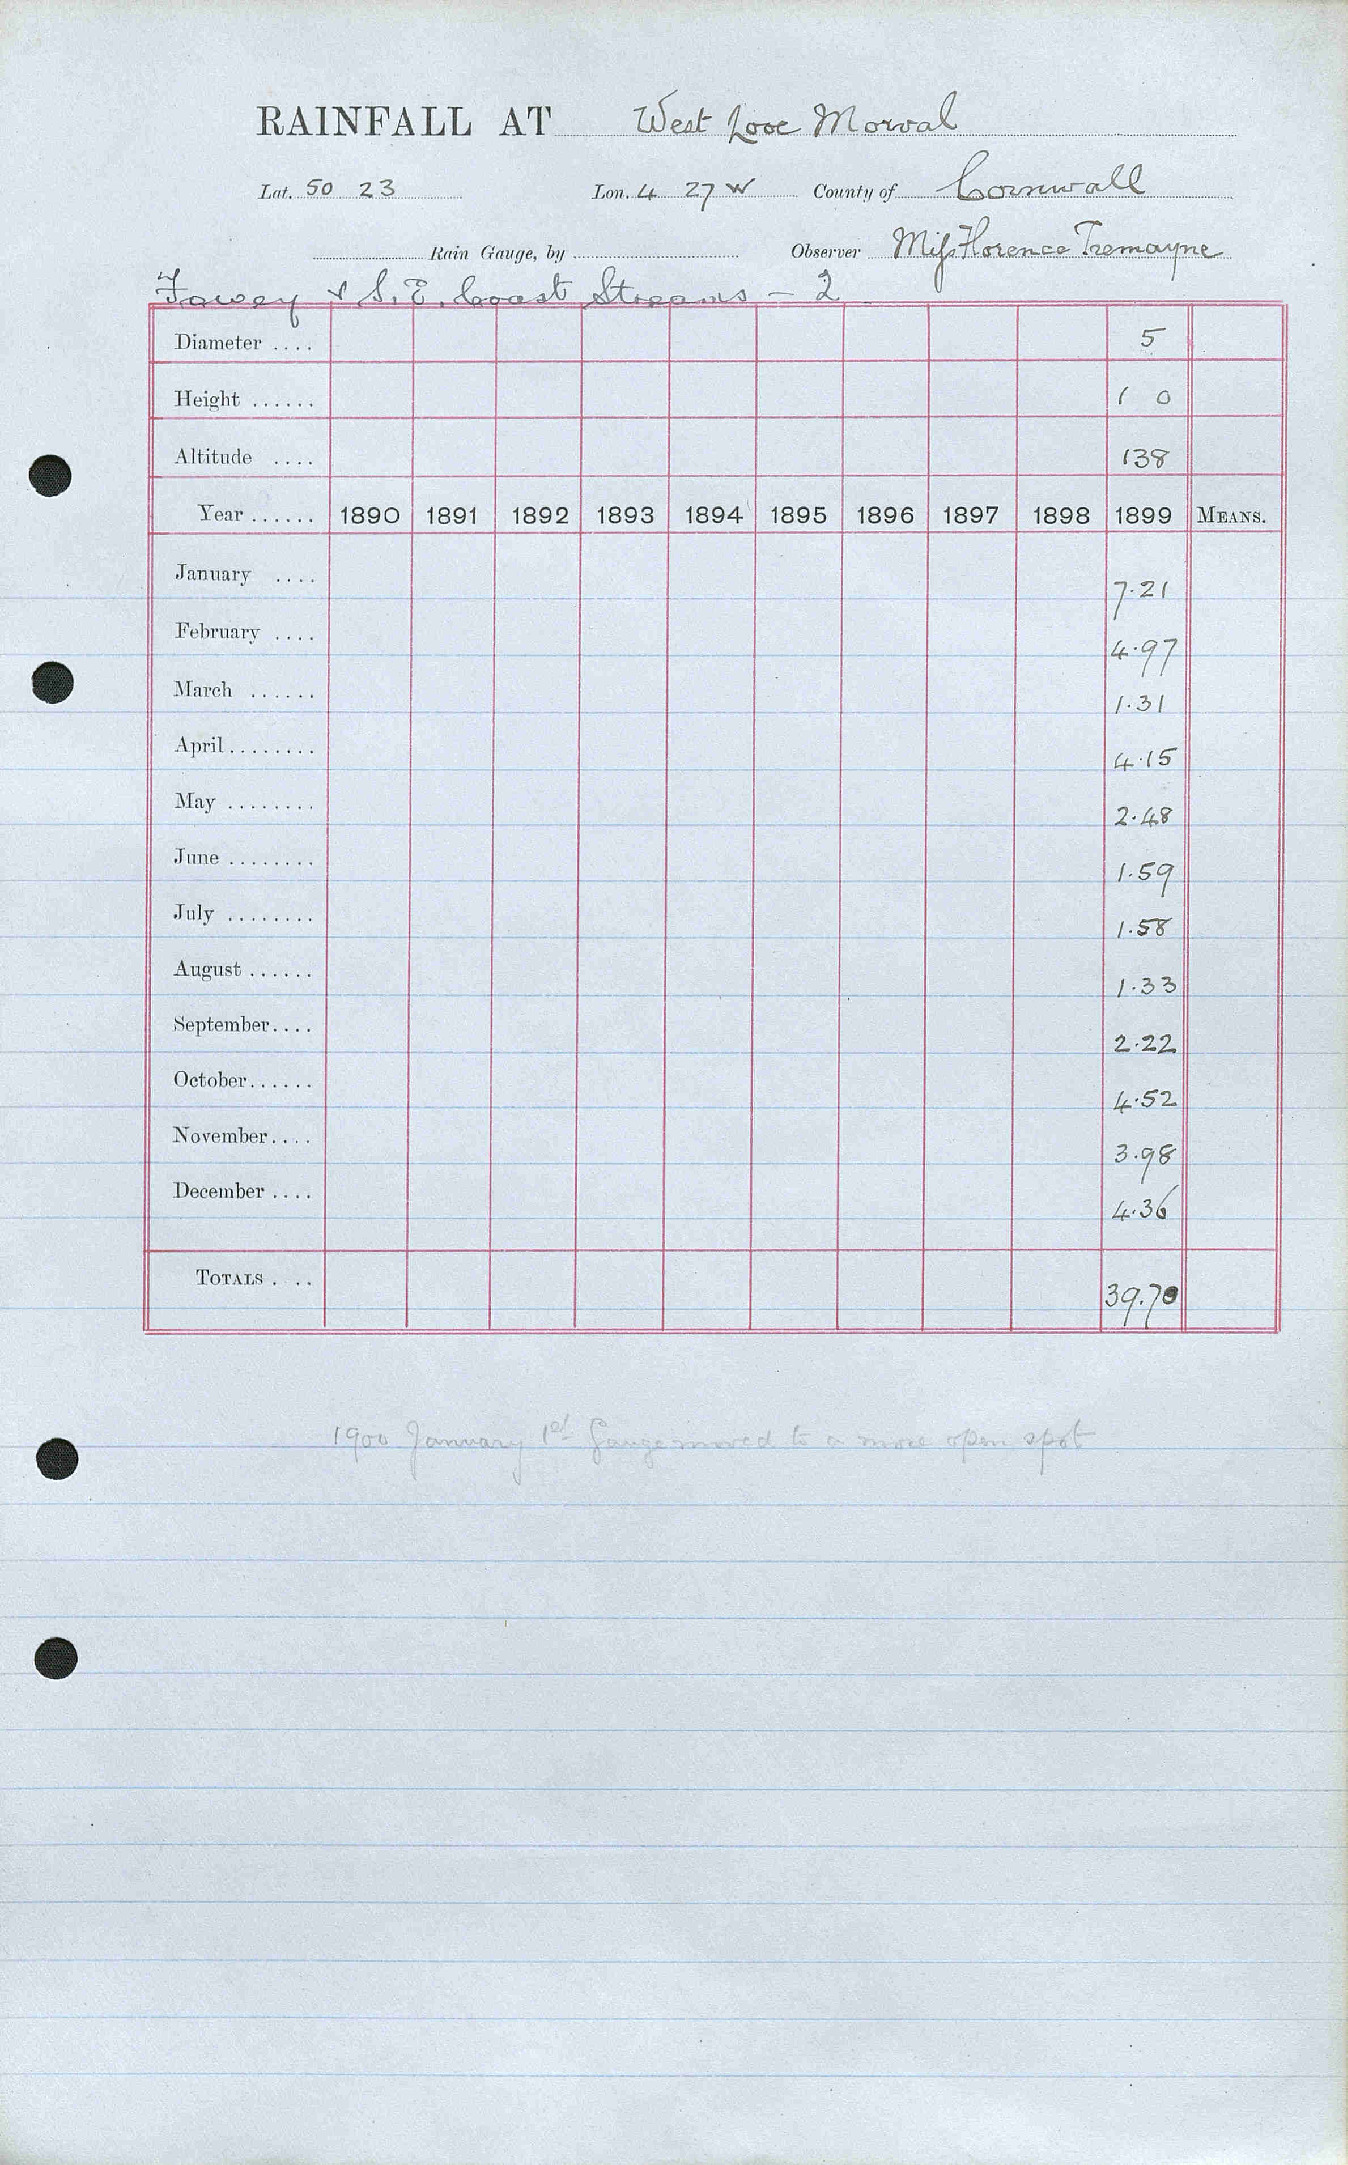 RAINFALL AT West Looe Morval
Lat. 50 23 Lon. 4 27 W County of Cornwall
Rain Gauge, by Observer Miss Florence Tremayne
Fowey & S.E. Coast Streams - 2
Diameter .... 5
Height ...... 1 0
Altitude .... 138
Year ...... 1890 1891 1892 1893 1894 1895 1896 1897 1898 1899 MEANS.
January .... 7.21
February .... 4.97
March ...... 1.31
April ........ 4.15
May ........ 2.48
June ........ 1.59
July ........ 1.58
August ...... 1.33
September.... 2.22
October...... 4.52
November.... 3.98
December .... 4.36
TOTALS . .. 39.70
1900 January 1st Gauge moved to a more open spot